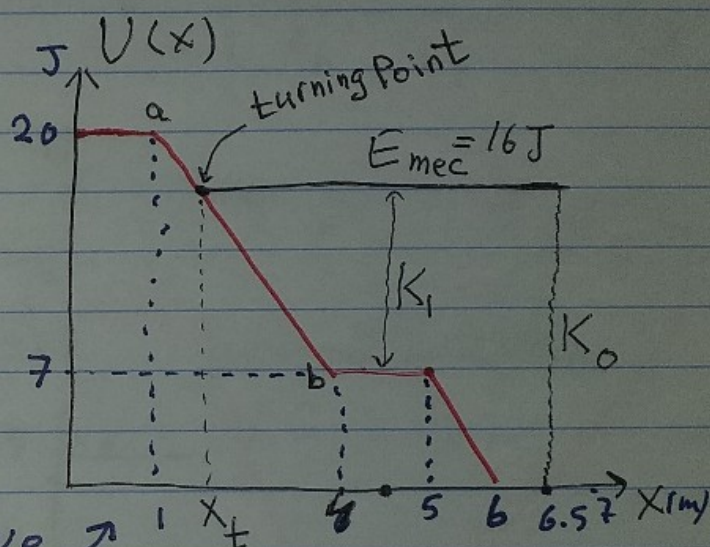 J U(x)
turning Point
a
20
E mec = 16 J
K₁
K₀
7
b
1 X_t 4 5 6 6.5 7 X(m)